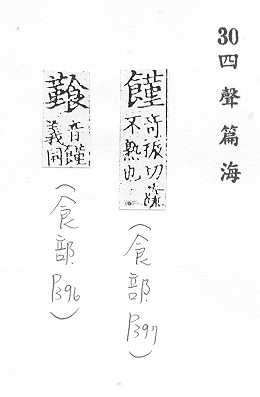 30四聲篇海
饉 奇㧞切蔬不熟也
(食部P397)
音饉義同
(食部P396)